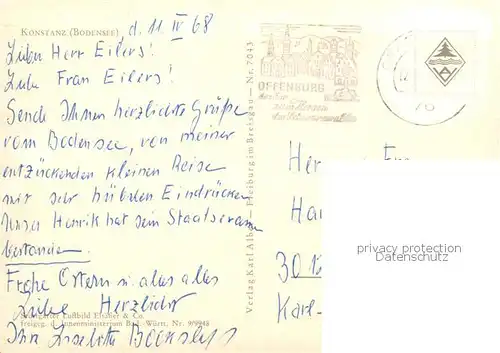 KONSTANZ (BODENSEE) d. 11 IV 68
Lieber Herr Eilers!
Liebe Frau Eilers!
Sende Ihnen herzlichste Grüße
vom Bodensee, von meiner
entzückenden kleinen Reise
mit sehr hübschen Eindrücken
Unser Henrik hat sein Staatsexamen
bestanden.
Frohe Ostern u. alles alles
Liebe Herzlichst
Ihre Liselotte
Luftbild Elsäßer & Co.
freigeg. d. Innenministerium Bad.-Württ. Nr.
Verlag Karl Alber — Freiburg im Breisgau — Nr. 7043
OFFENBURG
76
Her
Ha
30
Karl-
privacy protection
www.ansichtskartenversand.com